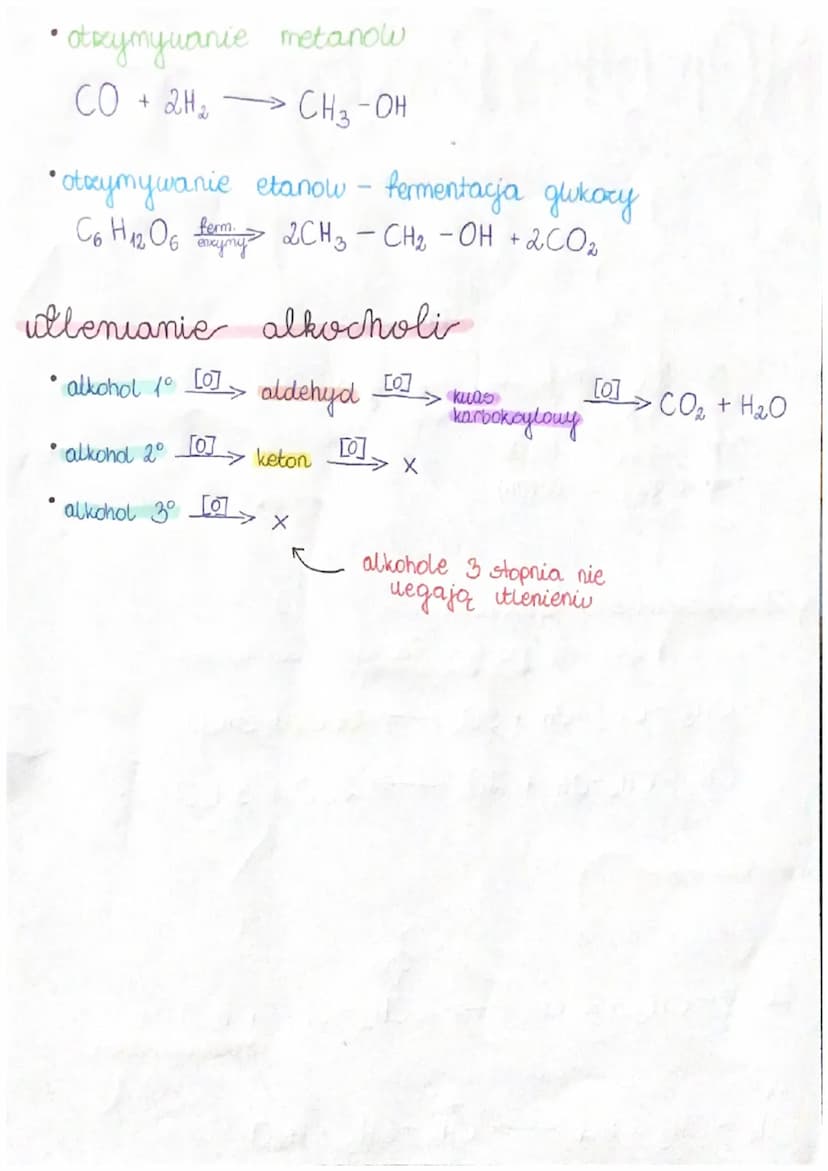 • otrzymywanie metanolu
CO + 2H₂ ⟶ CH₃-OH
• otrzymywanie etanolu - fermentacja glukozy
C₆H₁₂O₆ ferm. enzymy → 2CH₃ - CH₂ - OH + 2CO₂
utlenianie alkocholi
• alkohol 1° [O] → aldehyd [O] → kwas karboksylowy [O] → CO₂ + H₂O
• alkohol 2° [O] → keton [O] → x
• alkohol 3° [O] → x
alkohole 3 stopnia nie
uegają utlenieniu